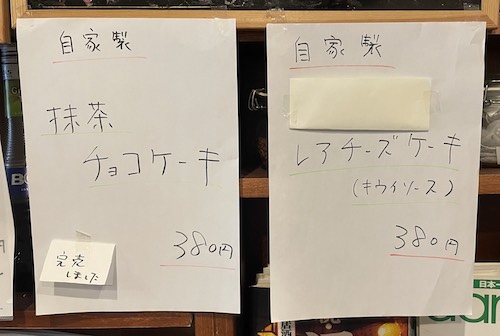 自家製
抹茶
チョコケーキ
380円
完売
しました
自家製
レアチーズケーキ
(キウイソース)
380円
日本一